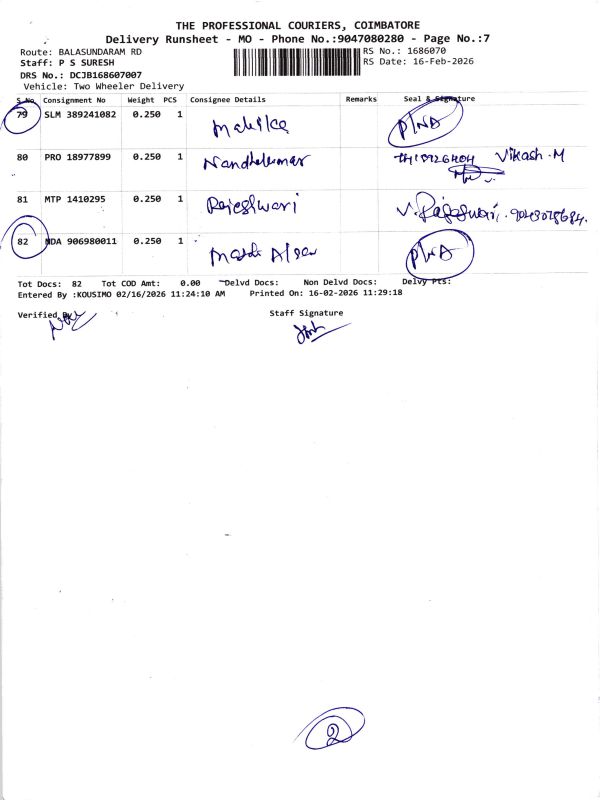 THE PROFESSIONAL COURIERS, COIMBATORE
Delivery Runsheet - MO - Phone No.:9047080280 - Page No.:7
Route: BALASUNDARAM RD RS No.: 1686070
Staff: P S SURESH RS Date: 16-Feb-2026
DRS No.: DCJB168607007
Vehicle: Two Wheeler Delivery
S.No. Consignment No Weight PCS Consignee Details Remarks Seal & Signature
79 SLM 389241082 0.250 1
80 PRO 18977899 0.250 1 Nandhakumar Vikash.M
81 MTP 1410295 0.250 1 Rajeshwari V. Rajeswari
82 NDA 906980011 0.250 1
Tot Docs: 82 Tot COD Amt: 0.00 Delvd Docs: Non Delvd Docs: Delvy Pts:
Entered By :KOUSIMO 02/16/2026 11:24:10 AM Printed On: 16-02-2026 11:29:18
Verified By Staff Signature
2